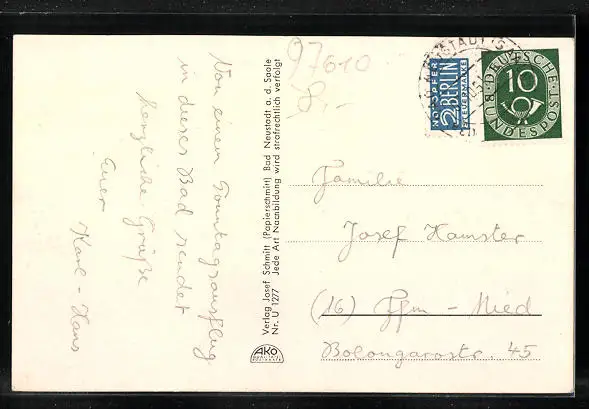 Von einem Sonntagsausflug
in dieses Bad sendet
herzliche Grüße
Euer
Karl-Hans
Verlag Josef Schmitt (Papierschmitt) Bad Neustadt a. d. Saale
Nr. U 1277 Jede Art Nachbildung wird strafrechtlich verfolgt
AKO
97610
8,-
NOTOPFER
2 BERLIN
STEUERMARKE
NEUSTADT (SA
DEUTSCHE
10
BUNDESPOST
Familie
Josef Hamster
(16) Ffm - Nied
Bolongarostr. 45